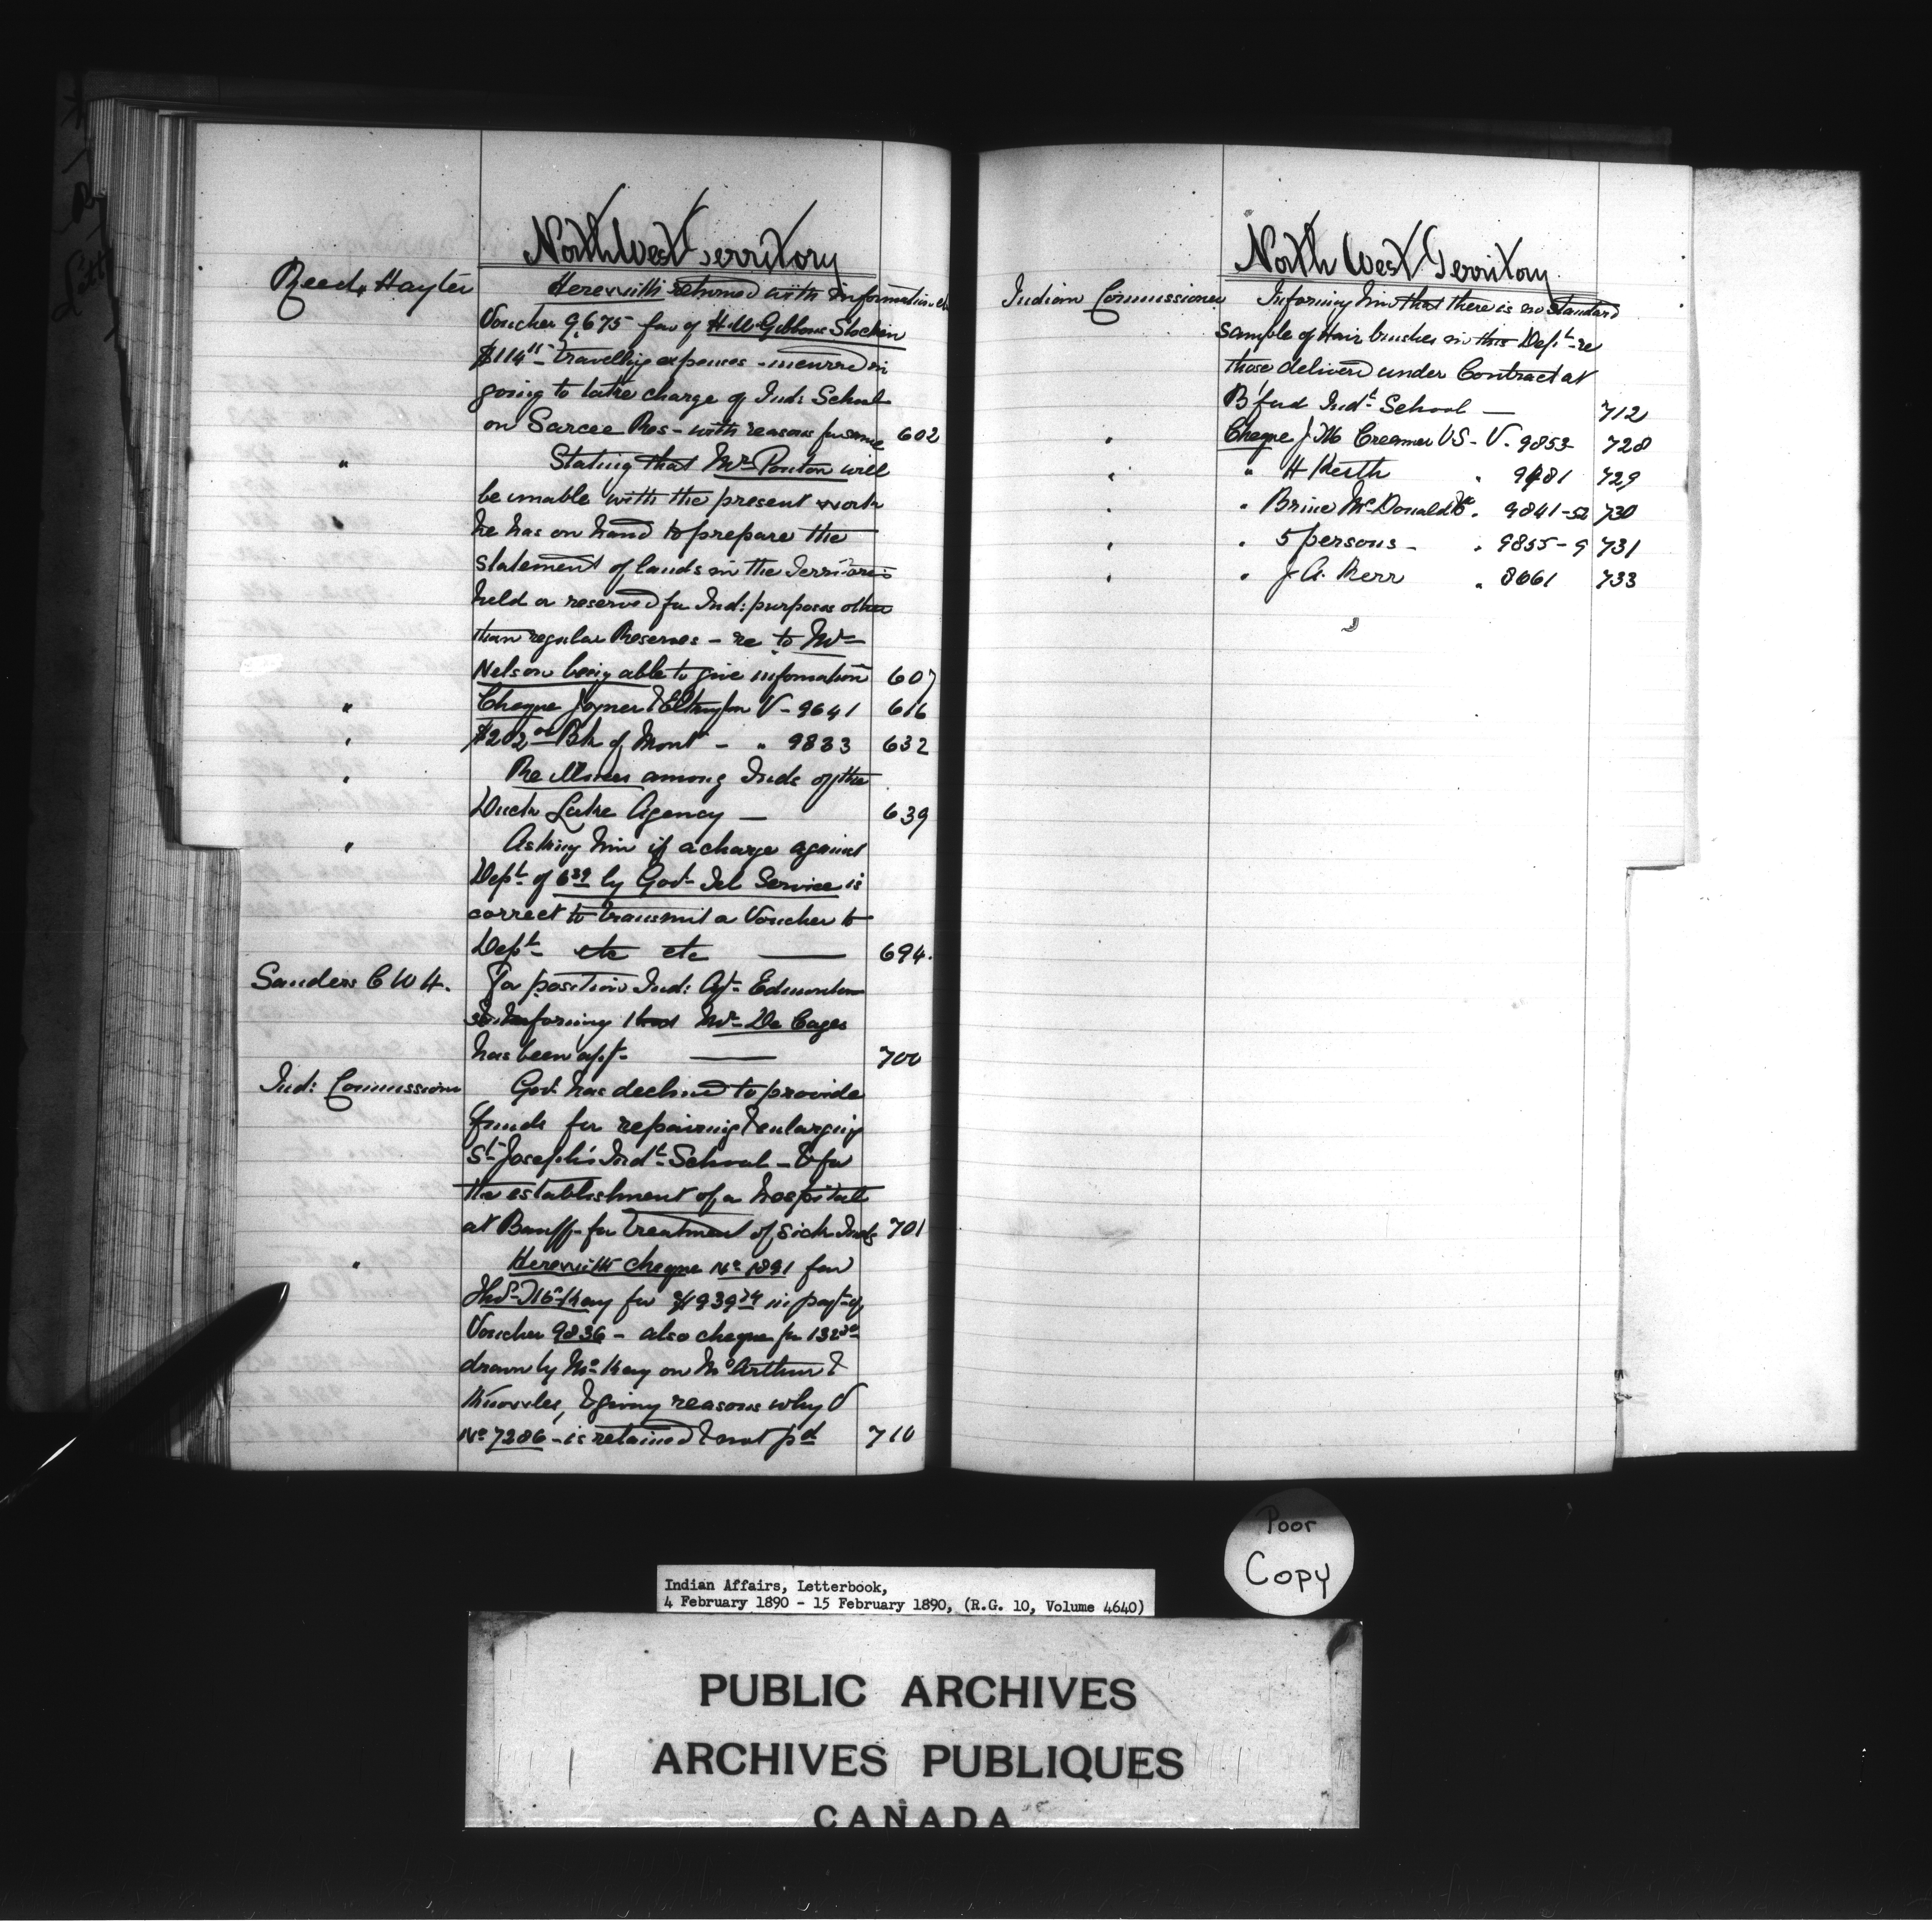 North West Territory
Reed, Hayter Herewith returned with information &c
Voucher 9675 fav of H.W. Gibbon Stocken
$114 travelling expenses incurred in
going to take charge of Ind: School
on Sarcee Res - with reasons for same 602
" Stating that Mr Ponton will
be unable with the present work
he has on hand to prepare the
statement of lands in the Territories
held or reserved for Ind: purposes other
than regular Reserves - re to Mr
Nelson being able to give information 607
" Cheque Joyner & Elkington V - 9641 616
" $202 00 Bk of Mont - " 9833 632
" Re among Inds of the
Duck Lake Agency — 639
" Asking him if a charge against
Dept of 6 39 by Govt Tel Service is
correct to transmit a Voucher to
Dept etc etc — 694.
Sanders C W H. For position Ind: Agt Edmonton
informing that Mr De Cazes
has been apt — 700
Ind: Commissioner Govt has declined to provide
funds for repairing & enlarging
St Joseph's Indl School - & for
the establishment of a hospital
at Banff for treatment of sick Inds 701
" Herewith cheque No 1891 fav
Thos McKay for $1939 74 in payt of
Voucher 9836 - also cheque for 132
drawn by McKay on McArthur &
Knowles, & giving reasons why V
No 7286 - is retained & not pd 710
North West Territory
Indian Commissioner Informing him that there is no standard
sample of Hair brushes in this Dept re
those delivered under Contract at
B'ford Indl School — 712
" Cheque J. M. Creamer VS - V. 9853 728
" " H Keith " 9481 729
" " Brine McDonald & Co " 9841-52 730
" " 5 persons - " 9855-9 731
" " J. A. Kerr " 8661 733
"
Poor
Copy
Indian Affairs, Letterbook,
4 February 1890 - 15 February 1890, (R.G. 10, Volume 4640)
PUBLIC ARCHIVES
ARCHIVES PUBLIQUES
CANADA